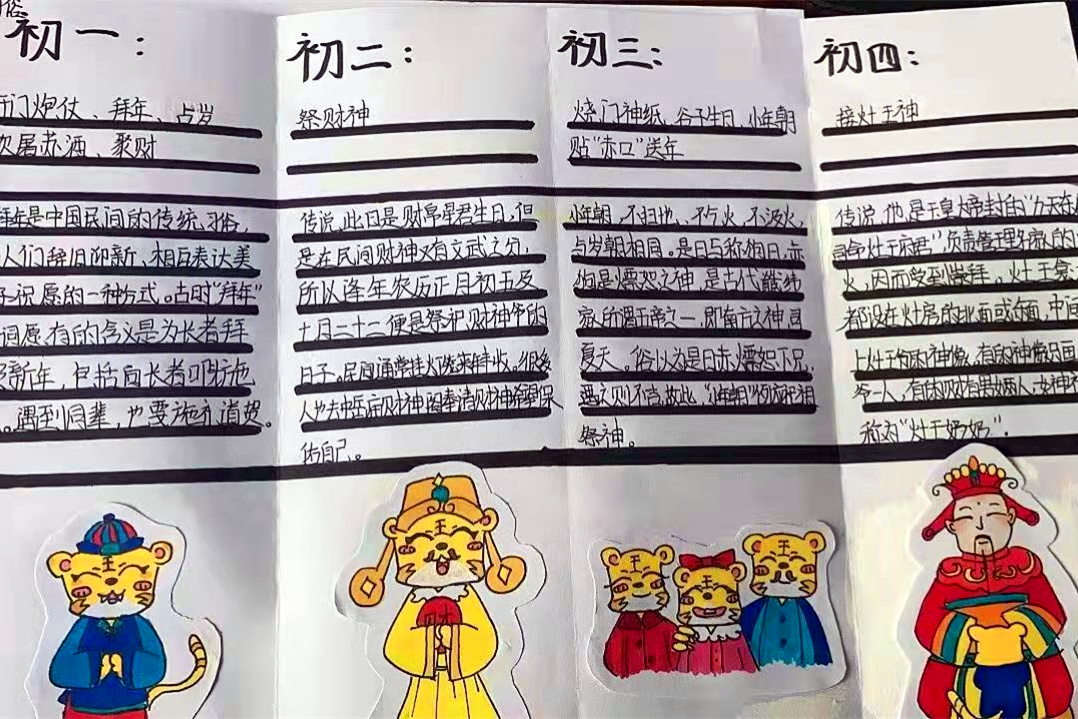 俗
初一:
开门炮仗、拜年、占岁
饮屠苏酒、聚财
拜年是中国民间的传统习俗,
人们辞旧迎新、相互表达美
好祝愿的一种方式。古时"拜年"
词原有的含义是为长者拜
新年,包括向长者叩头施
。遇到同辈,也要施礼道贺。
初二:
祭财神
传说,此日是财帛星君生日,但
是在民间财神又有文武之分,
所以逢年农历正月初五及
十月二十二便是祭祀财神爷的
日子。民间通常挂火烧来鲜收。很多
人也去中岳庙财神阁奉请财神希望保
佑自己。
初三:
烧门神纸、谷子生日、小年朝
贴"赤口"送年
小年朝,不扫地、不乞火、不汲火,
与岁朝相同。是日与称狗日,赤
狗是熛怒之神,是古代谶纬
家所谓五帝之一,即南方之神,司
夏天。俗以为是日赤熛怒下凡,
遇之则不吉,故此,"小年朝"例应祀祖
祭神。
初四:
接灶王神
传说,他是玉皇大帝封的"九天东厨
司命灶王府君",负责管理各家的灶
火,因而受到崇拜。灶王龛
都设在灶房的北面或东面,中间
上灶王爷的神像。有的神像只画
爷一人,有的则有男女两人,女神被
称为"灶王奶奶"。
财